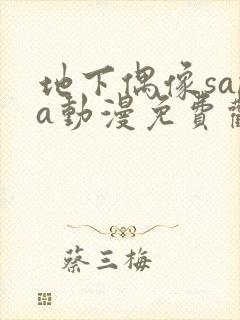 地下偶像sa
a動漫免費
蔡三梅